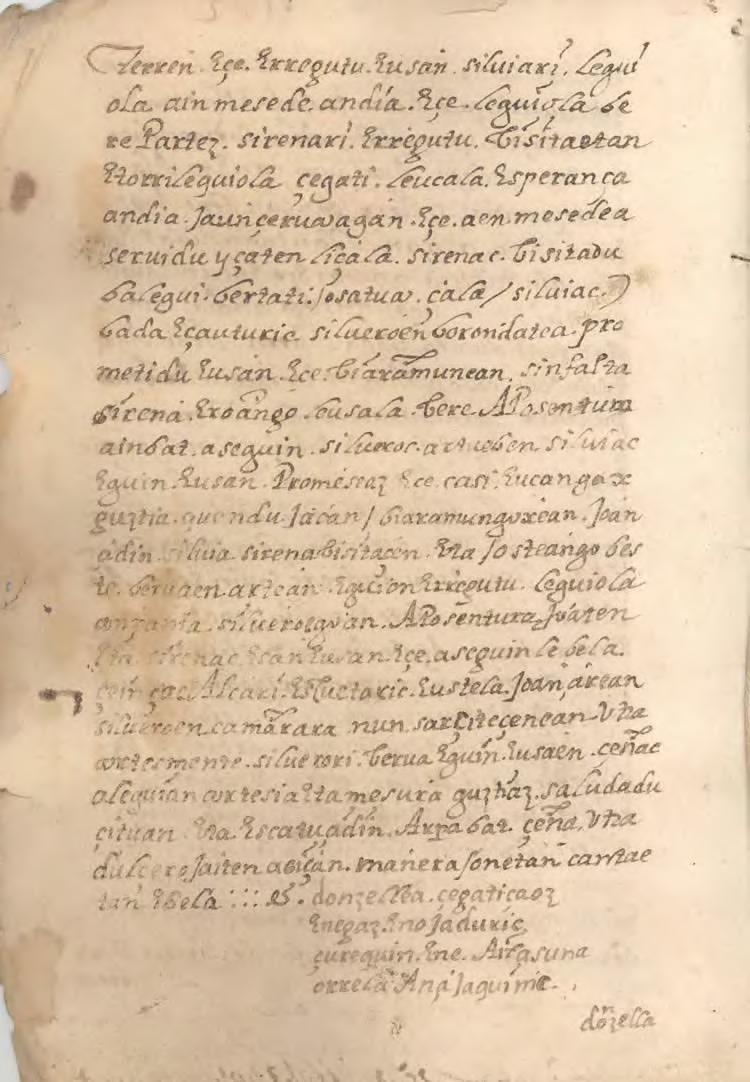 Terren. Eçe. Erregutu. Eusan silviari. legui
ola ain mesede. andia. Eçe. leguiola be
re Partez. sirenari. Erregutu. bisitaetan
Etorrileguiola çegati. leucala. Esperança
andia. Jaunçeruaagan. Eçe. aen. mesedea
seruidu yçaten liçala. sirenac. bisitadu
balegui. bertati. / osatua. çala / silviac.)
bada Eçauturic silueroen borondatea. pro
metidu Eusan. Eçe. biaramunean. sinfalta
sirena. Eroango. leusala. bere. APosentura
ainbat. aseguin. silueroc. artueben. silviac
Eguin. Eusan. Promeseaz Eçe. casi. Eucan gax
guztia. quendu. Jacan / biaramungoxean. Joan
adin silvia sirena bisitaçen. Eta Josteango bes
te. beruaen. artean Erregutu. leguiola
silueroegoan. APosentura. Joaten
Eta sirenac. Esan Eusan. Eçe. aseguin lebela.
Alcari. Escuetaric. Eustela. Joan arean
silueroen. camarara nun. sarçiteçenean. Vna
cortesmente. siluerori. berua Eguin. Eusaen. çeñac
aleguian cortesia Eta mesura guztiaz. saludadu
çituan Eta. Escatuçadin. Arpa bat. çeña. Vna
dulcero Jaiten abiçan. manera / onetan cantae
tan Ebela :::
donzellea. çegaticaoz
Enegaz. Eno Jaduric
çurequin. Ene. Airasuna
orrela Jaquinic.
dozella